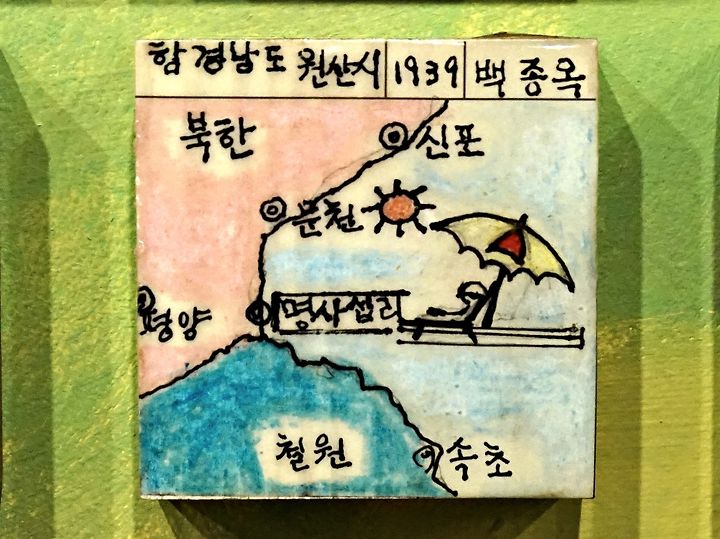 함경남도 원산시 1939 백종옥
북한
신포
문천
명사십리
평양
철원
속초